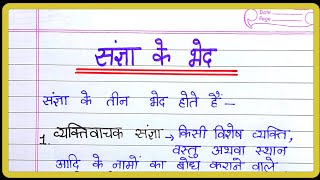 Date
Page
संज्ञा के भेद
संज्ञा के तीन भेद होते हैं –
1. व्यक्तिवाचक संज्ञा → किसी विशेष व्यक्ति,
वस्तु अथवा स्थान
आदि के नामों का बोध कराने वाले